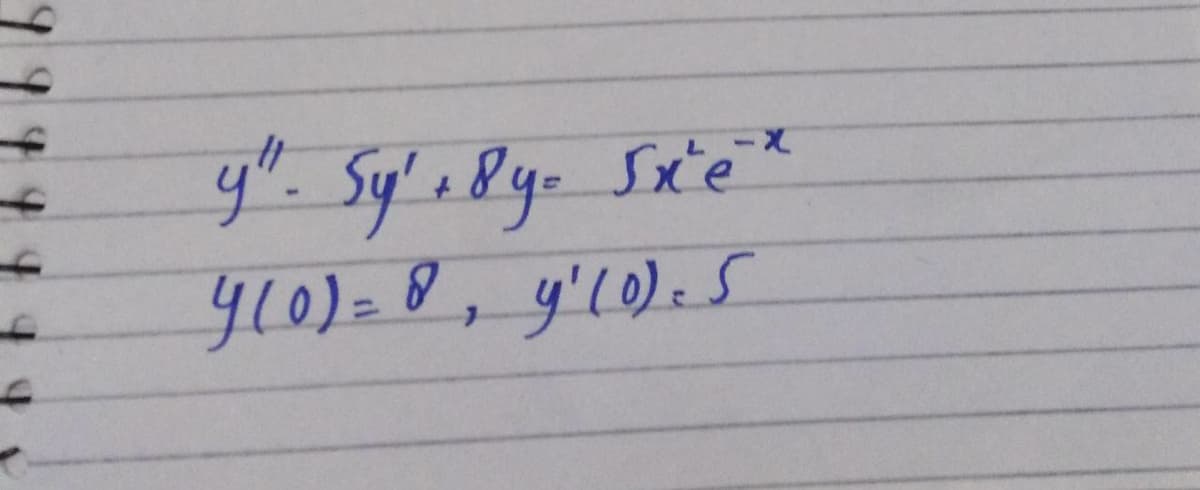 y'' - 5y' + 8y = 5x²e⁻ˣ
y(0) = 8, y'(0) = 5